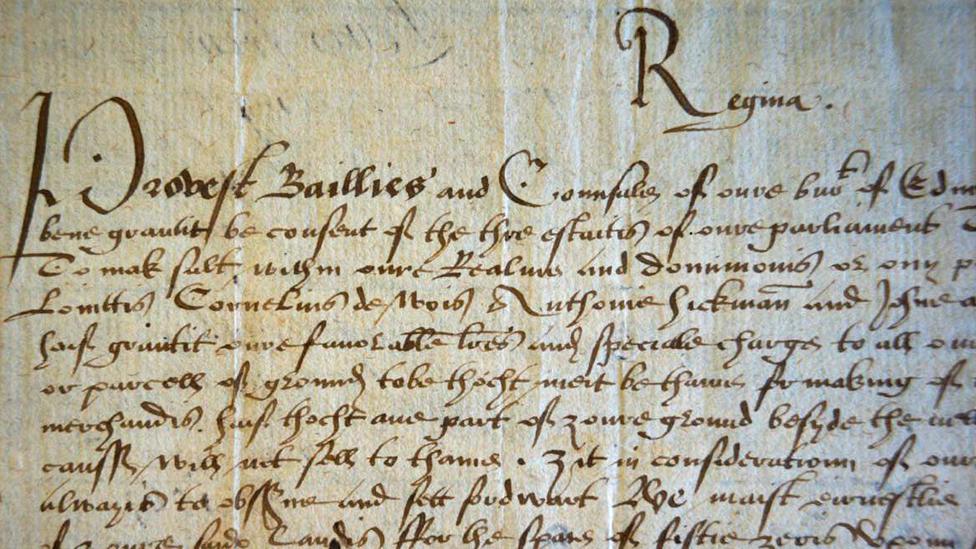 Regina.
Provest Baillies and Counsale of oure burt of Edin
bene grantit be consent of the thre estaitis of oure parliament
To mak salt within oure Realme and dominionis or ony p
Cornelius de Wois & Anthonie hickman and Johne
haif grantit oure favorable lres and speciale charge to all our
or parcell of ground to be thocht meit be thame for making of
merchandis. haif thocht ane part of zoure ground besyde the
causs will not sell to thame. Zit in consideratioun of our
alwayis to obserue and sett fordwart We maist ernestlie
of zoure saidis Landis ffor the space of fiftie zeris